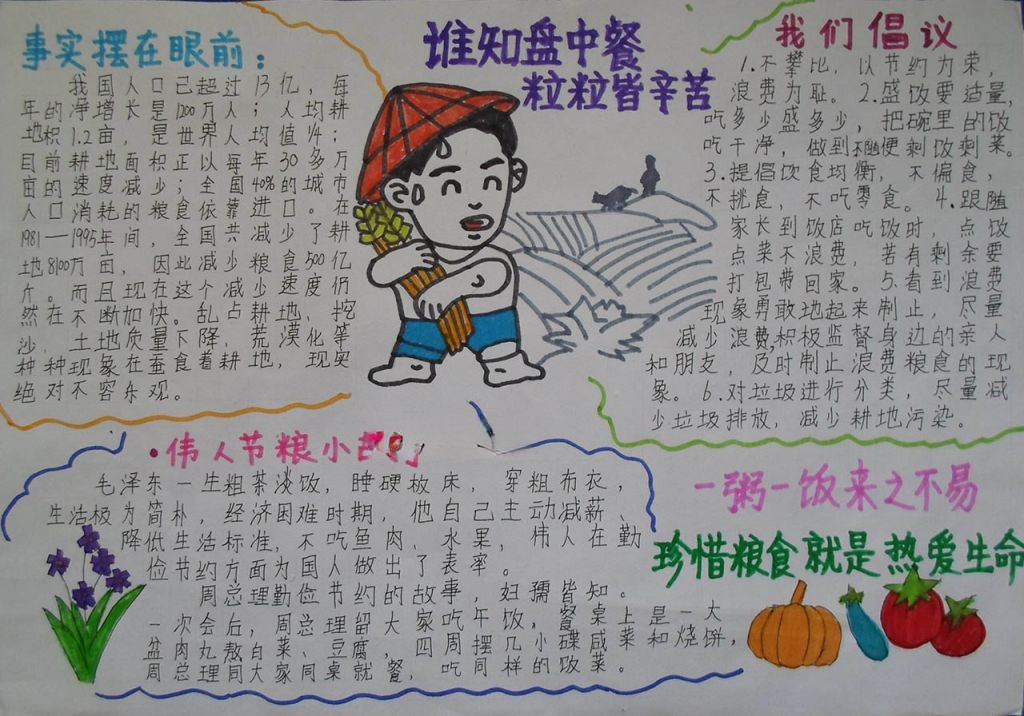 事实摆在眼前：
我国人口已超过13亿，每
年的净增长是1200万人；人均耕
地积1.2亩，是世界人均值1/4；
目前耕地面积正以每年30多万
亩的速度减少；全国40%的城市
人口消耗的粮食依靠进口。在
1981—1995年间，全国共减少了耕
地8100万亩，因此减少粮食500亿
斤。而且现在这个减少速度仍
然在不断加快。乱占耕地、挖
沙、土地质量下降，荒漠化等
种种现象在蚕食着耕地，现实
绝对不容乐观。
谁知盘中餐
粒粒皆辛苦
我们倡议
1.不攀比，以节约为荣，
浪费为耻。2.盛饭要适量，
吃多少盛多少，把碗里的饭
吃干净，做到不随便剩饭剩菜。
3.提倡饮食均衡，不偏食，
不挑食，不吃零食。4.跟随
家长到饭店吃饭时，点饭
点菜不浪费，若有剩余要
打包带回家。5.看到浪费
现象勇敢地起来制止，尽量
减少浪费积极监督身边的亲人
和朋友，及时制止浪费粮食的现
象。6.对垃圾进行分类，尽量减
少垃圾排放，减少耕地污染。
·伟人节粮小
毛泽东一生粗茶淡饭，睡硬板床，穿粗布衣，
生活极为简朴，经济困难时期，他自己主动减薪、
降低生活标准，不吃鱼肉、水果，伟人在勤
俭节约方面为国人做出了表率。
周总理勤俭节约的故事，妇孺皆知。
一次会后，周总理留大家吃午饭，餐桌上是一大
盆肉丸熬白菜、豆腐，四周摆几小碟咸菜和烧饼，
周总理同大家同桌就餐，吃同样的饭菜。
一粥一饭来之不易
珍惜粮食就是热爱生命